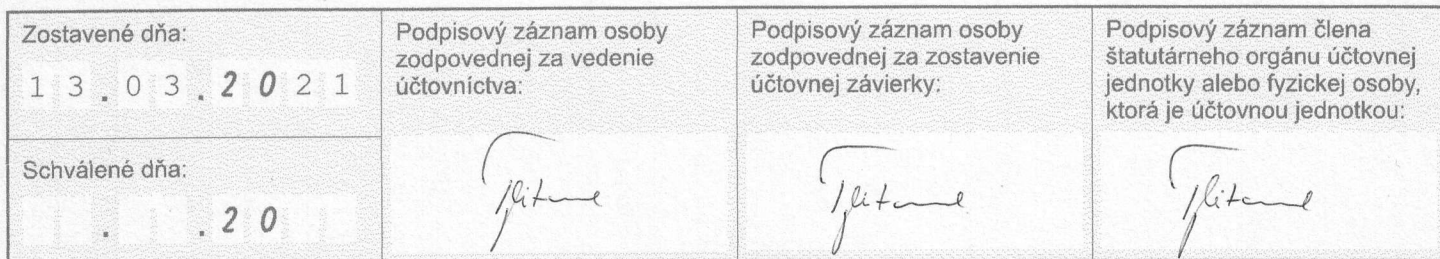 Zostavené dňa:
13.03.2021
Schválené dňa:
. .20
Podpisový záznam osoby
zodpovednej za vedenie
účtovníctva:
Podpisový záznam osoby
zodpovednej za zostavenie
účtovnej závierky:
Podpisový záznam člena
štatutárneho orgánu účtovnej
jednotky alebo fyzickej osoby,
ktorá je účtovnou jednotkou: